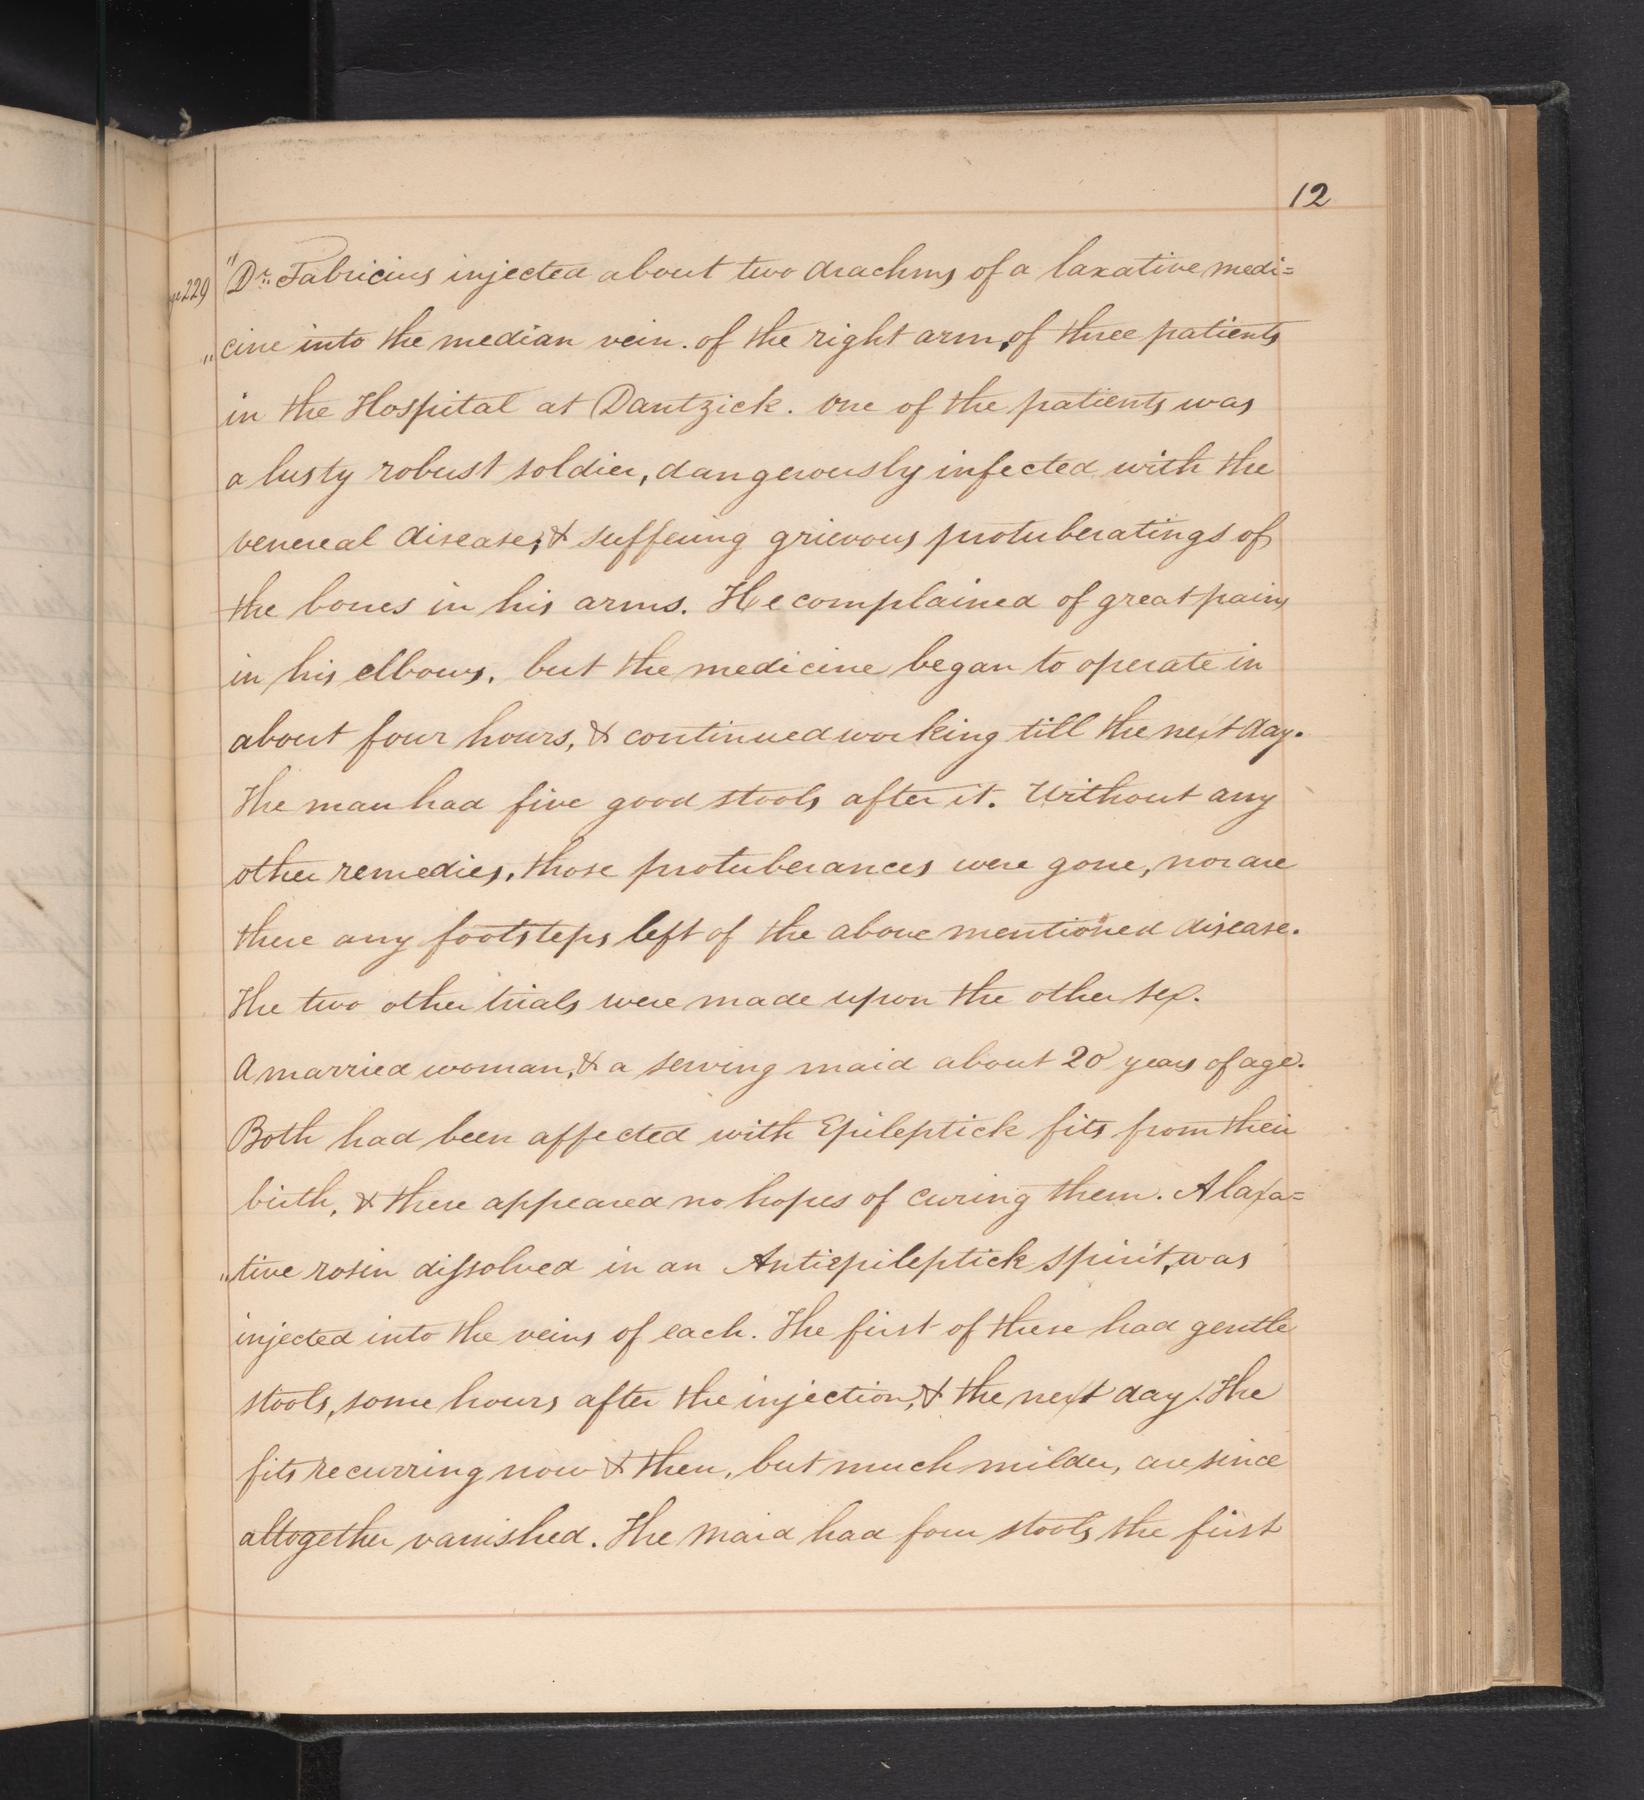 12
p 229 "Dr. Fabricius injected about two drachms of a laxative medi=
"cine into the median vein. of the right arm, of three patients
in the Hospital at Dantzick. One of the patients was
a lusty robust soldier, dangerously infected with the
venereal disease, & suffering grievous protuberatings of
the bones in his arms. He complained of great pains
in his elbows, but the medicine began to operate in
about four hours, & continued working till the next day.
The man had five good stools after it. Without any
other remedies, those protuberances were gone, nor are
there any footsteps left of the above mentioned disease.
The two other trials were made upon the other sex.
A married woman, & a serving maid about 20 years of age.
Both had been affected with Epileptick fits from their
birth, & there appeared no hopes of curing them. A laxa=
"tive rosin dissolved in an Antiepileptick spirit, was
injected into the veins of each. The first of these had gentle
stools, some hours after the injection, & the next day. The
fits recurring now & then, but much milder, are since
altogether vanished. The Maid had four stools the first